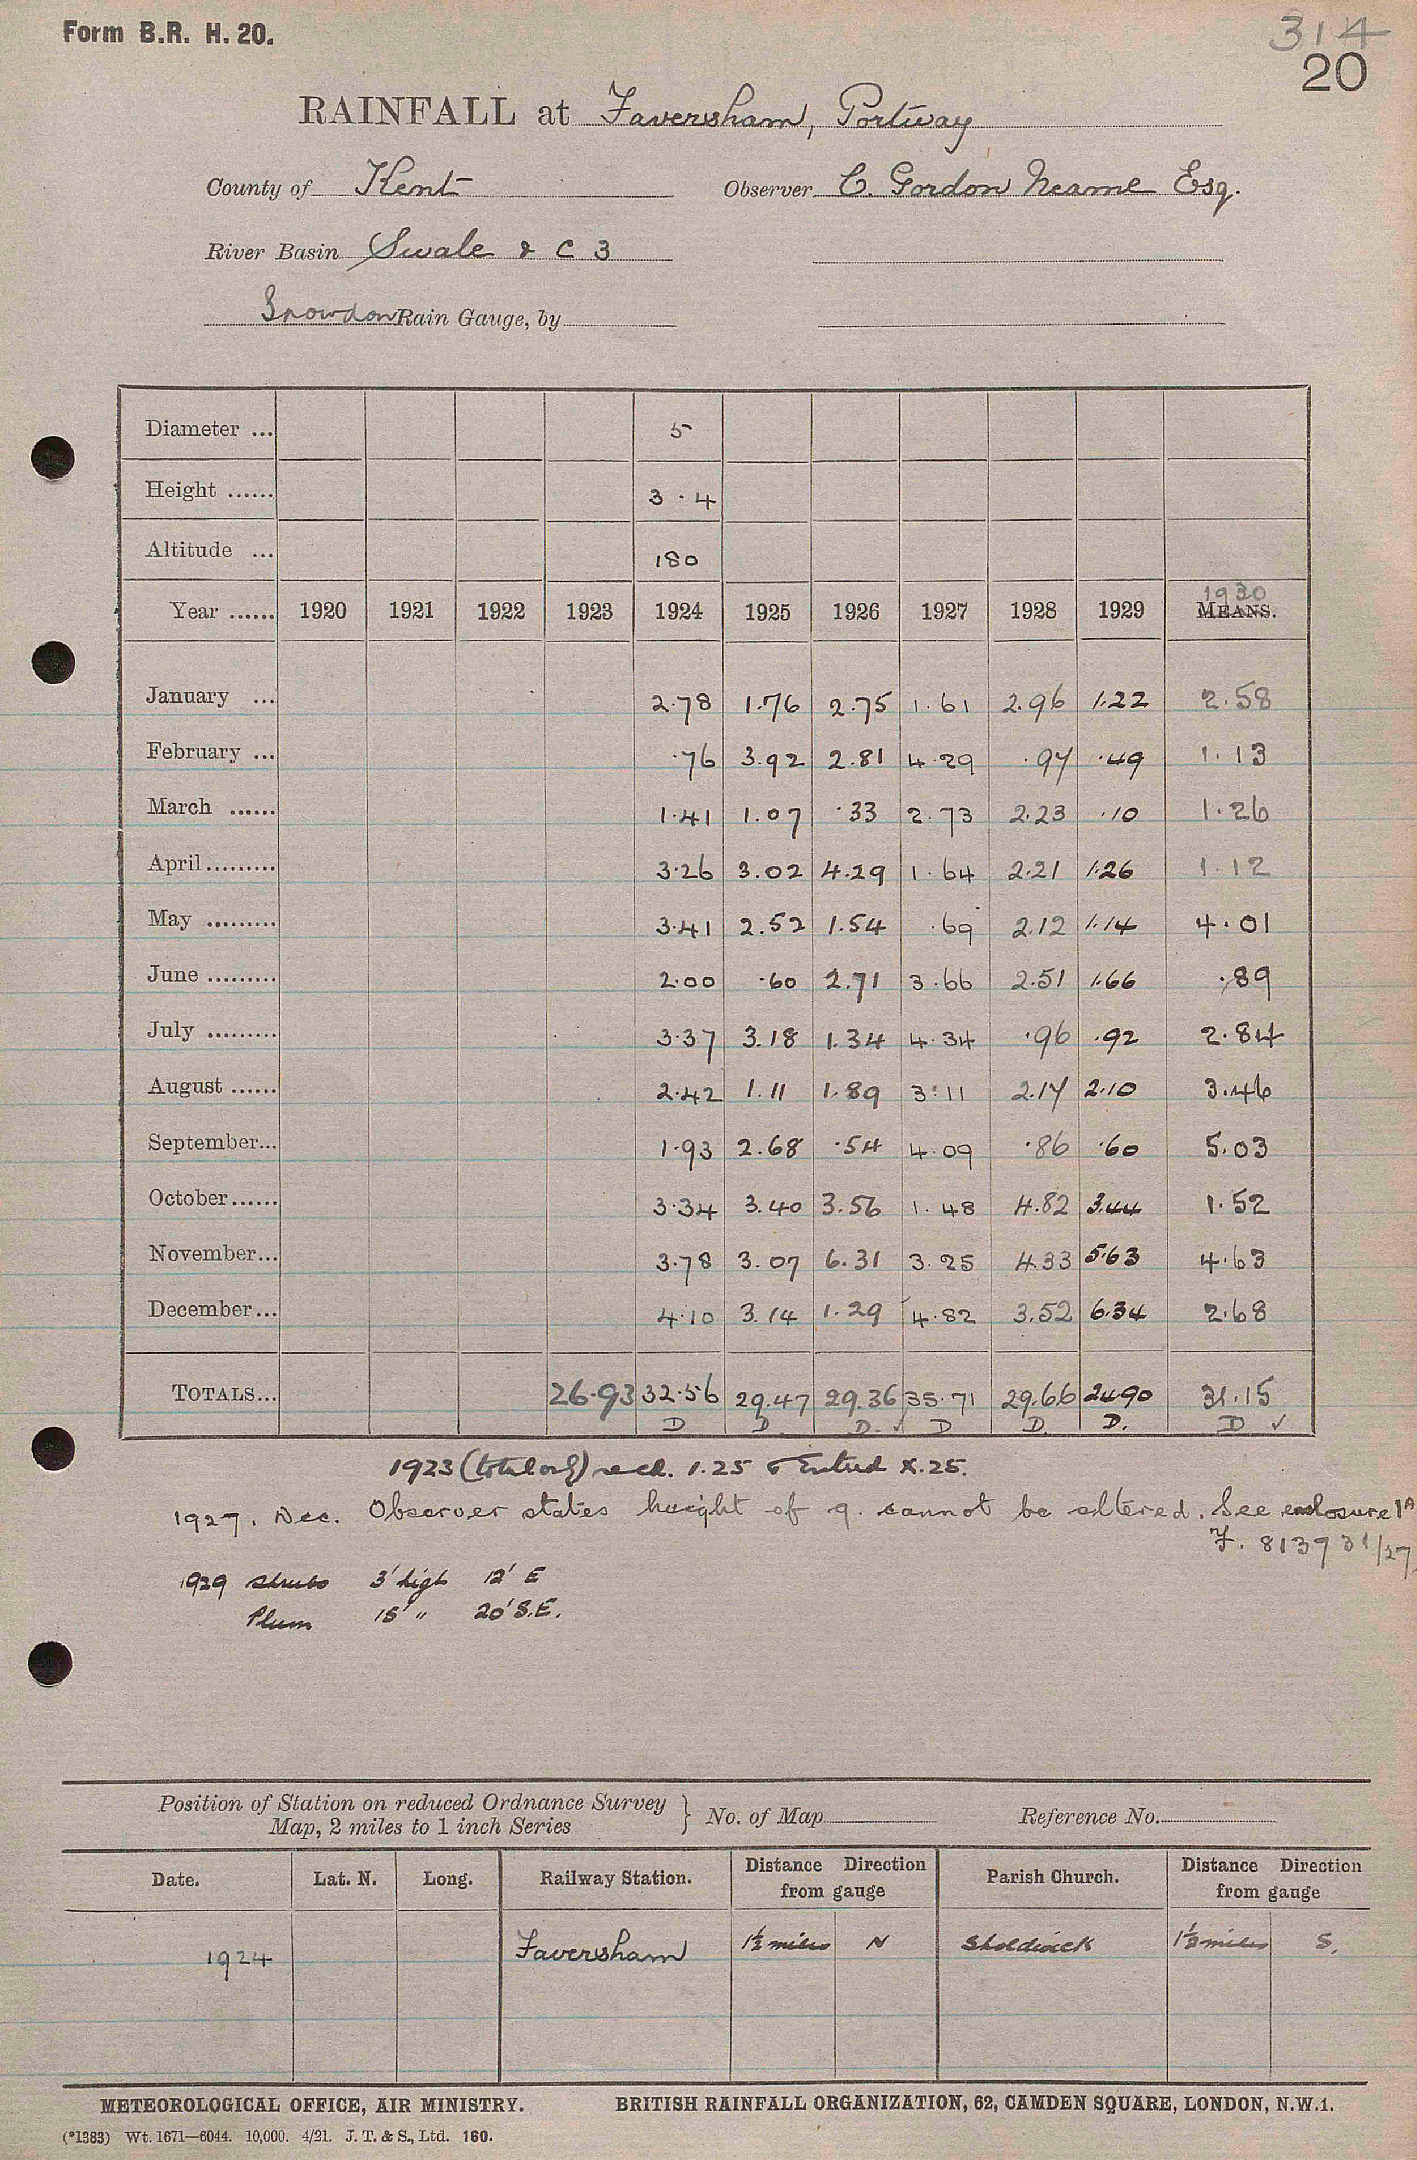 Form B.R. H. 20.
314
20
RAINFALL at Faversham, Portway
County of Kent Observer C. Gordon Neame Esq.
River Basin Swale & C 3
Snowdon Rain Gauge, by
Diameter ... 5
Height ...... 3 . 4
Altitude ... 180
1930
Year ...... 1920 1921 1922 1923 1924 1925 1926 1927 1928 1929 MEANS.
January ... 2.78 1.76 2.75 1.61 2.96 1.22 2.58
February ... .76 3.92 2.81 4.29 .97 .49 1.13
March ...... 1.41 1.07 .33 2.73 2.23 .10 1.26
April ......... 3.26 3.02 4.29 1.64 2.21 1.26 1.12
May ......... 3.41 2.52 1.54 .69 2.12 1.14 4.01
June ......... 2.00 .60 2.71 3.66 2.51 1.66 .89
July ......... 3.37 3.18 1.34 4.34 .96 .92 2.84
August ...... 2.42 1.11 1.89 3.11 2.17 2.10 3.46
September... 1.93 2.68 .54 4.09 .86 .60 5.03
October...... 3.34 3.40 3.56 1.48 4.82 3.44 1.52
November... 3.78 3.07 6.31 3.25 4.33 5.63 4.63
December... 4.10 3.14 1.29 4.82 3.52 6.34 2.68
TOTALS... 26.93 32.56 29.47 29.36 35.71 29.66 24.90 31.15
D D D. ✓ D D. D. D ✓
1923 (total only) recd. 1.25 & Entered X.25.
1927. Dec. Observer states height of g. cannot be altered. See enclosure 1A
F. 81373 1/27
1929 shrubs 3' high 12' E
Plum 15' " 20' S.E.
Position of Station on reduced Ordnance Survey
Map, 2 miles to 1 inch Series } No. of Map Reference No.
Date. Lat. N. Long. Railway Station. Distance Direction from gauge Parish Church. Distance Direction from gauge
1924 Faversham 1½ miles N Sheldwick 1½ miles S.
METEOROLOGICAL OFFICE, AIR MINISTRY. BRITISH RAINFALL ORGANIZATION, 62, CAMDEN SQUARE, LONDON, N.W.1.
(*1383) Wt. 1671—6044. 10,000. 4/21. J. T. & S., Ltd. 160.